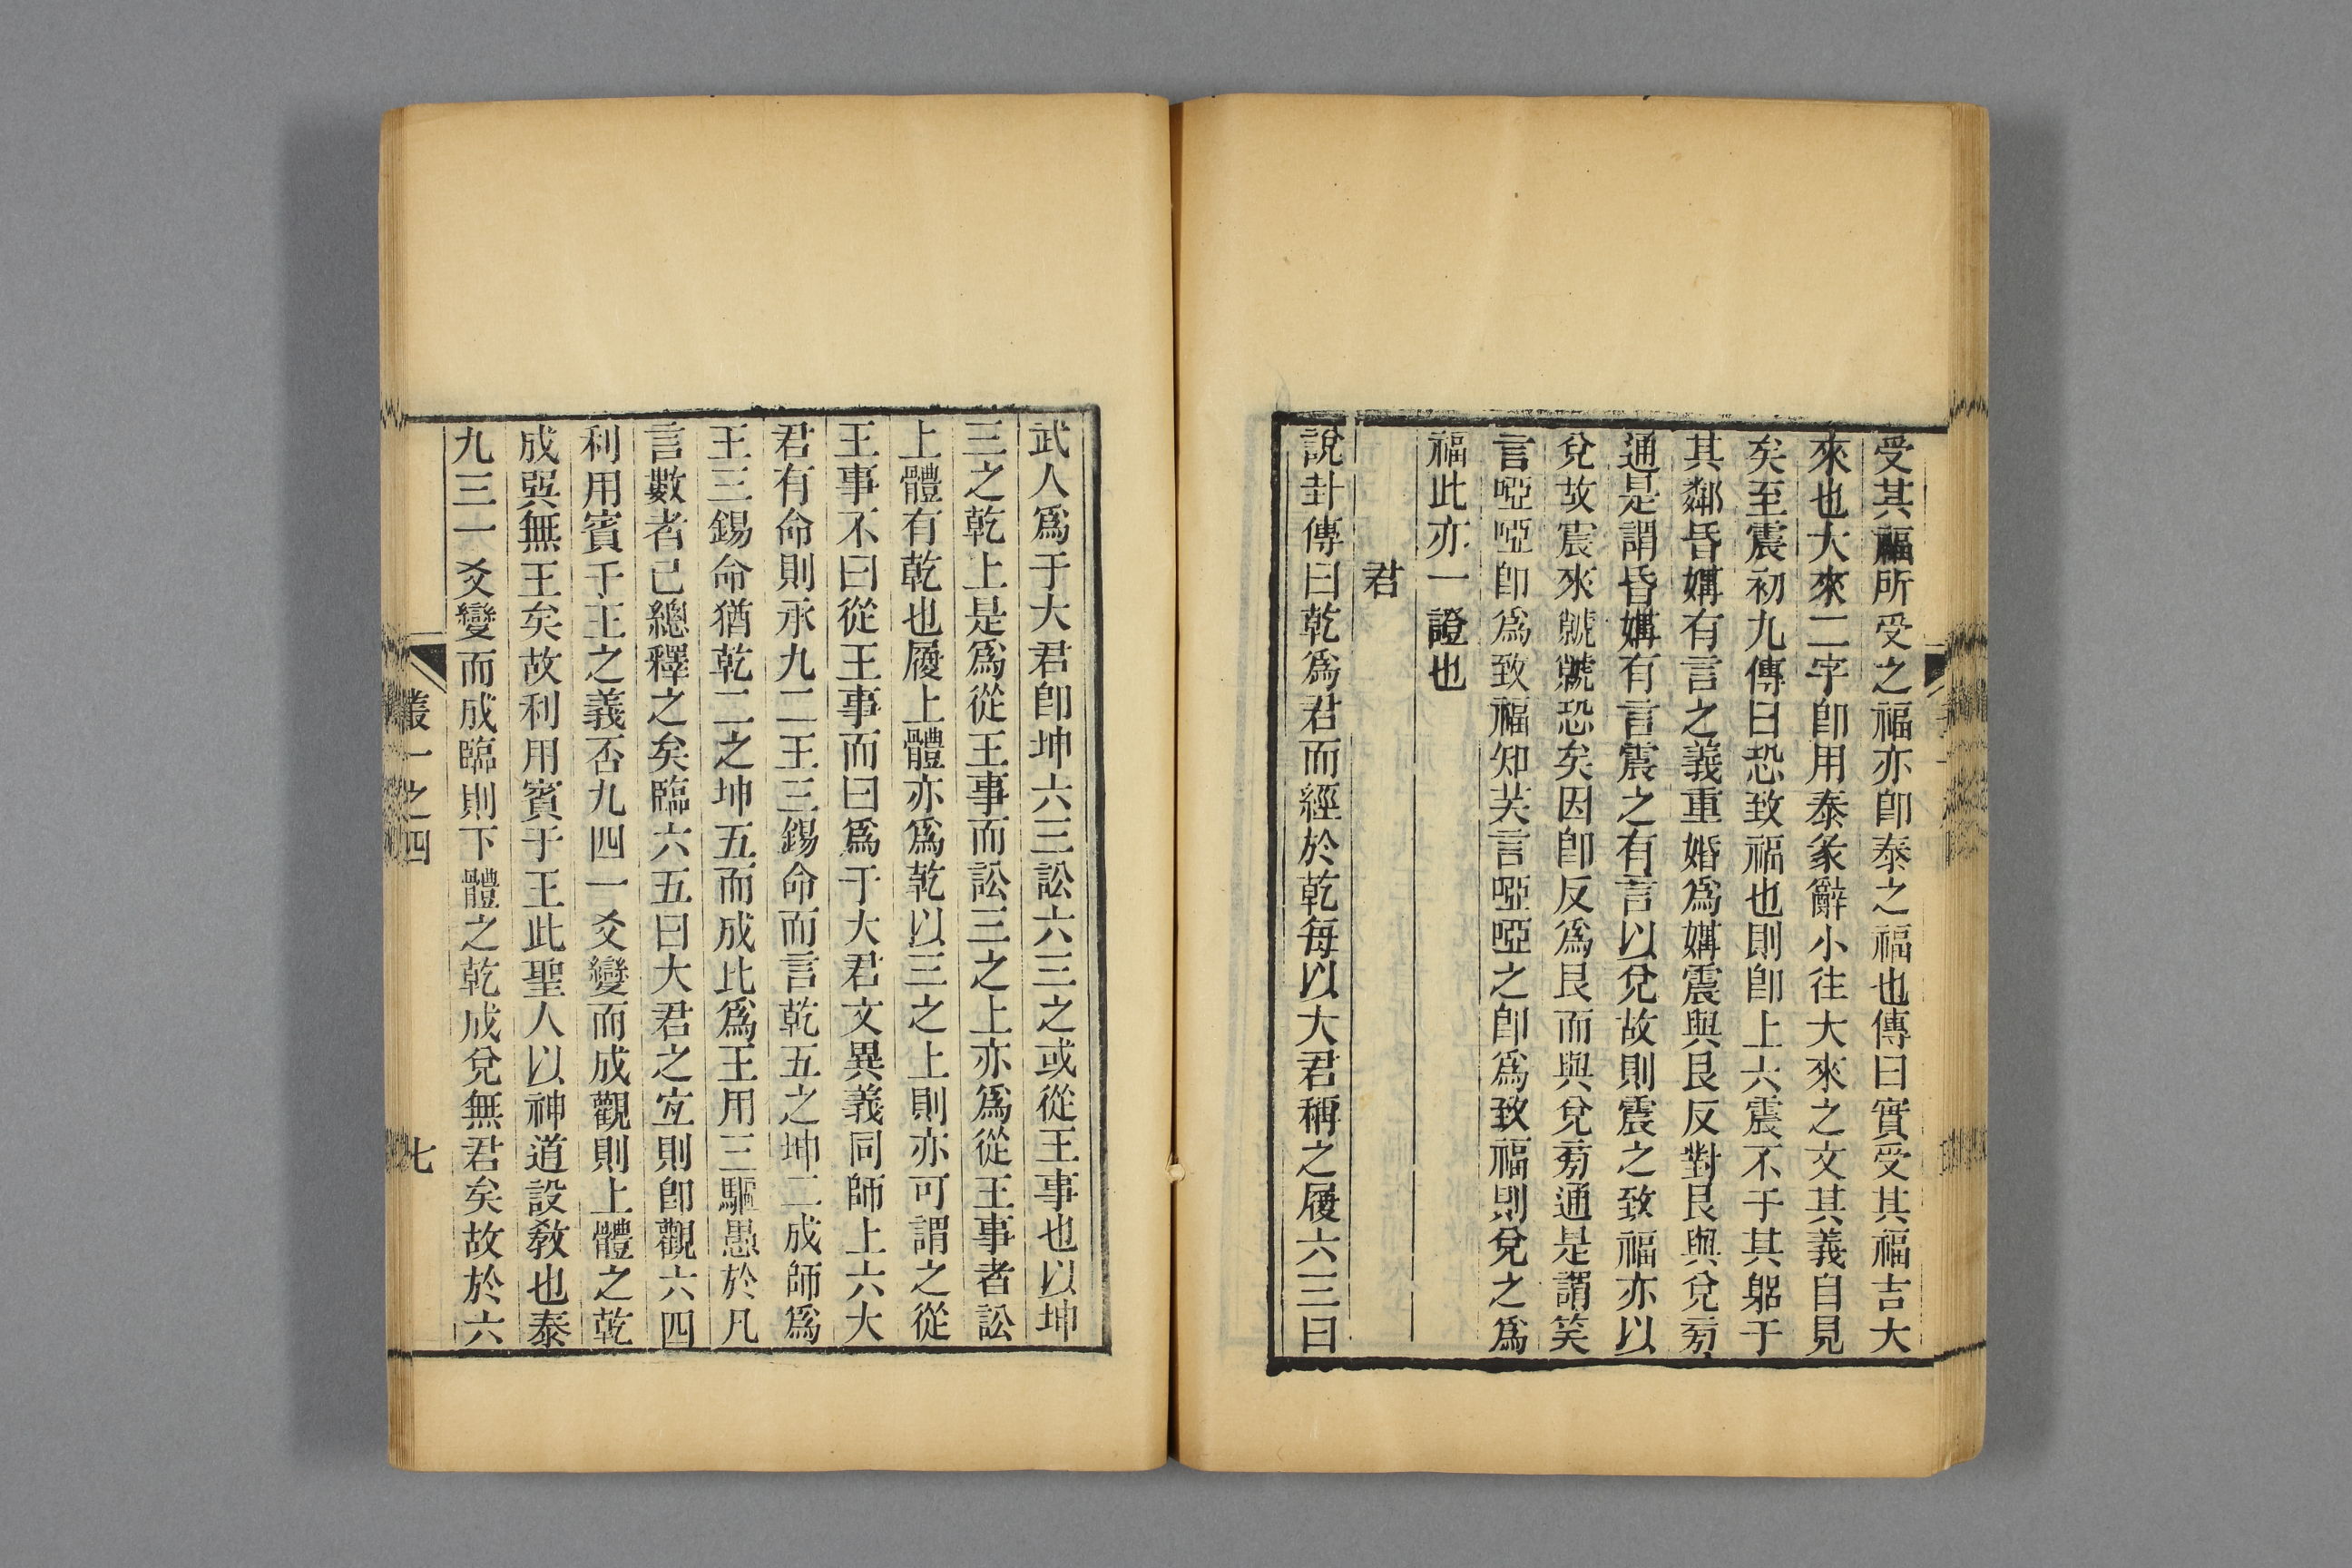 受其福所受之福亦卽泰之福也傳曰實受其福吉大
來也大來二字卽用泰彖辭小往大來之文其義自見
矣至震初九傳曰恐致福也則卽上六震不于其躳于
其鄰昏媾有言之義重婚爲媾震與艮反對艮與兌旁
通是謂昏媾有言震之有言以兌故則震之致福亦以
兌故震來虩虩恐矣因卽反爲艮而與兌旁通是謂笑
言啞啞卽爲致福知笑言啞啞之卽爲致福則兌之爲
福此亦一證也
君
說卦傳曰乾爲君而經於乾每以大君稱之履六三曰
武人爲于大君卽坤六三訟六三之或從王事也以坤
三之乾上是爲從王事而訟三之上亦爲從王事者訟
上體有乾也履上體亦爲乾以三之上則亦可謂之從
王事不曰從王事而曰爲于大君文異義同師上六大
君有命則承九二王三錫命而言乾五之坤二成師爲
王三錫命猶乾二之坤五而成比爲王用三驅愚於凡
言數者已總釋之矣臨六五曰大君之宜則卽觀六四
利用賓于王之義否九四一爻變而成觀則上體之乾
成巽無王矣故利用賓于王此聖人以神道設敎也泰
九三一爻變而成臨則下體之乾成兌無君矣故於六
叢一之四
七